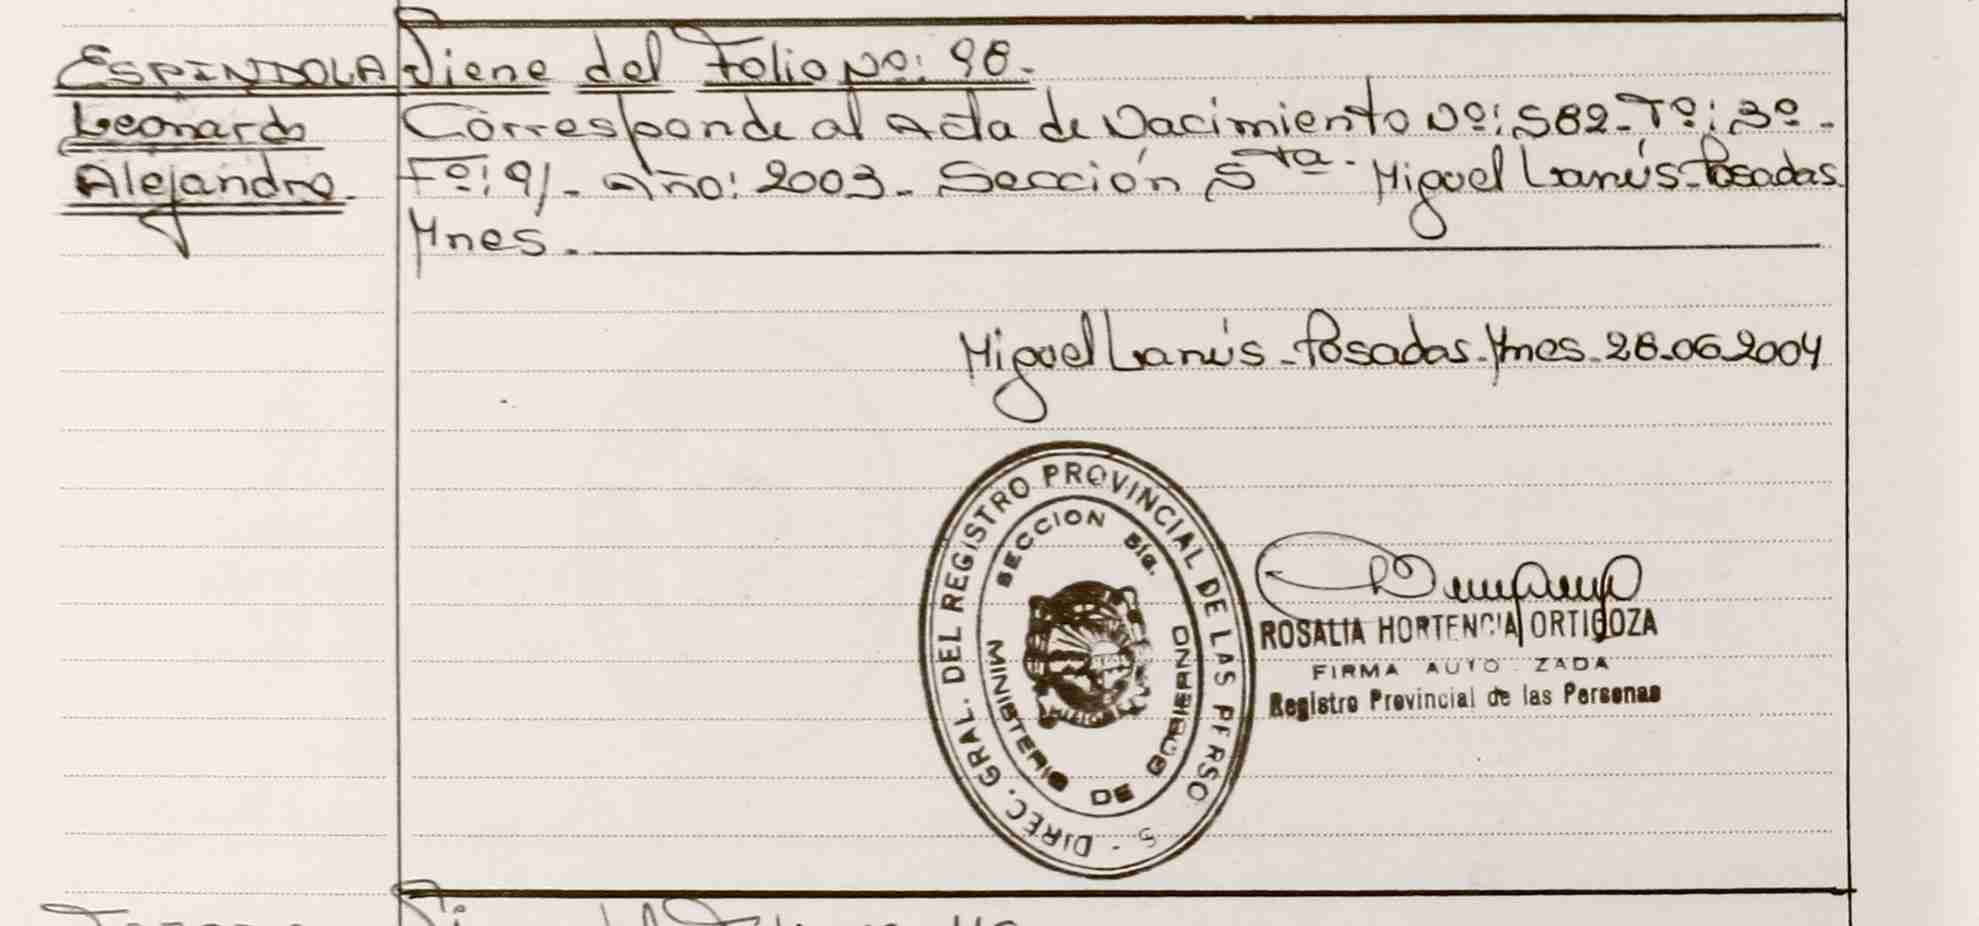 ESPINDOLA Viene del Folio Nº: 98.
Leonardo Corresponde al Acta de Nacimiento Nº: 582-Tº: 3º-
Alejandro. Fº: 91- Año: 2003- Sección 5ta- Miguel Lanús-Posadas
Mnes.
Miguel Lanús-Posadas-Mnes-28-06-2004
DIREC. GRAL. DEL REGISTRO PROVINCIAL DE LAS PERSO S -
SECCION 5ta.
MINISTERIO DE GOBIERNO
ROSALIA HORTENCIA ORTIGOZA
FIRMA AUTO ZADA
Registro Provincial de las Personas